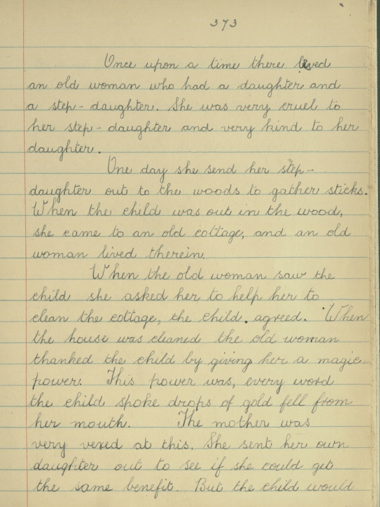 373
Once upon a time there lived
an old woman who had a daughter and
a step-daughter. She was very cruel to
her step-daughter and very kind to her
daughter.
One day she send her step-
daughter out to the woods to gather sticks.
When the child was out in the wood,
she came to an old cottage, and an old
woman lived therein.
When the old woman saw the
child she asked her to help her to
clean the cottage, the child, agreed. When
the house was cleaned the old woman
thanked the child by giving her a magic
power. This power was, every word
the child spoke drops of gold fell from
her mouth. The mother was
very vexed at this. She sent her own
daughter out to see if she could get
the same benefit. But the child would